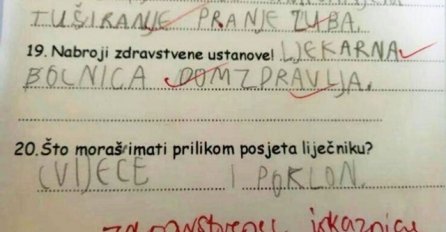 TUŠIRANJE PRANJE ZUBA.
19. Nabroji zdravstvene ustanove! LJEKARNA
BOLNICA DOM ZDRAVLJA.
20. Što moraš imati prilikom posjeta liječniku?
CVIJEĆE I POKLON.
zdravstvenu iskaznicu